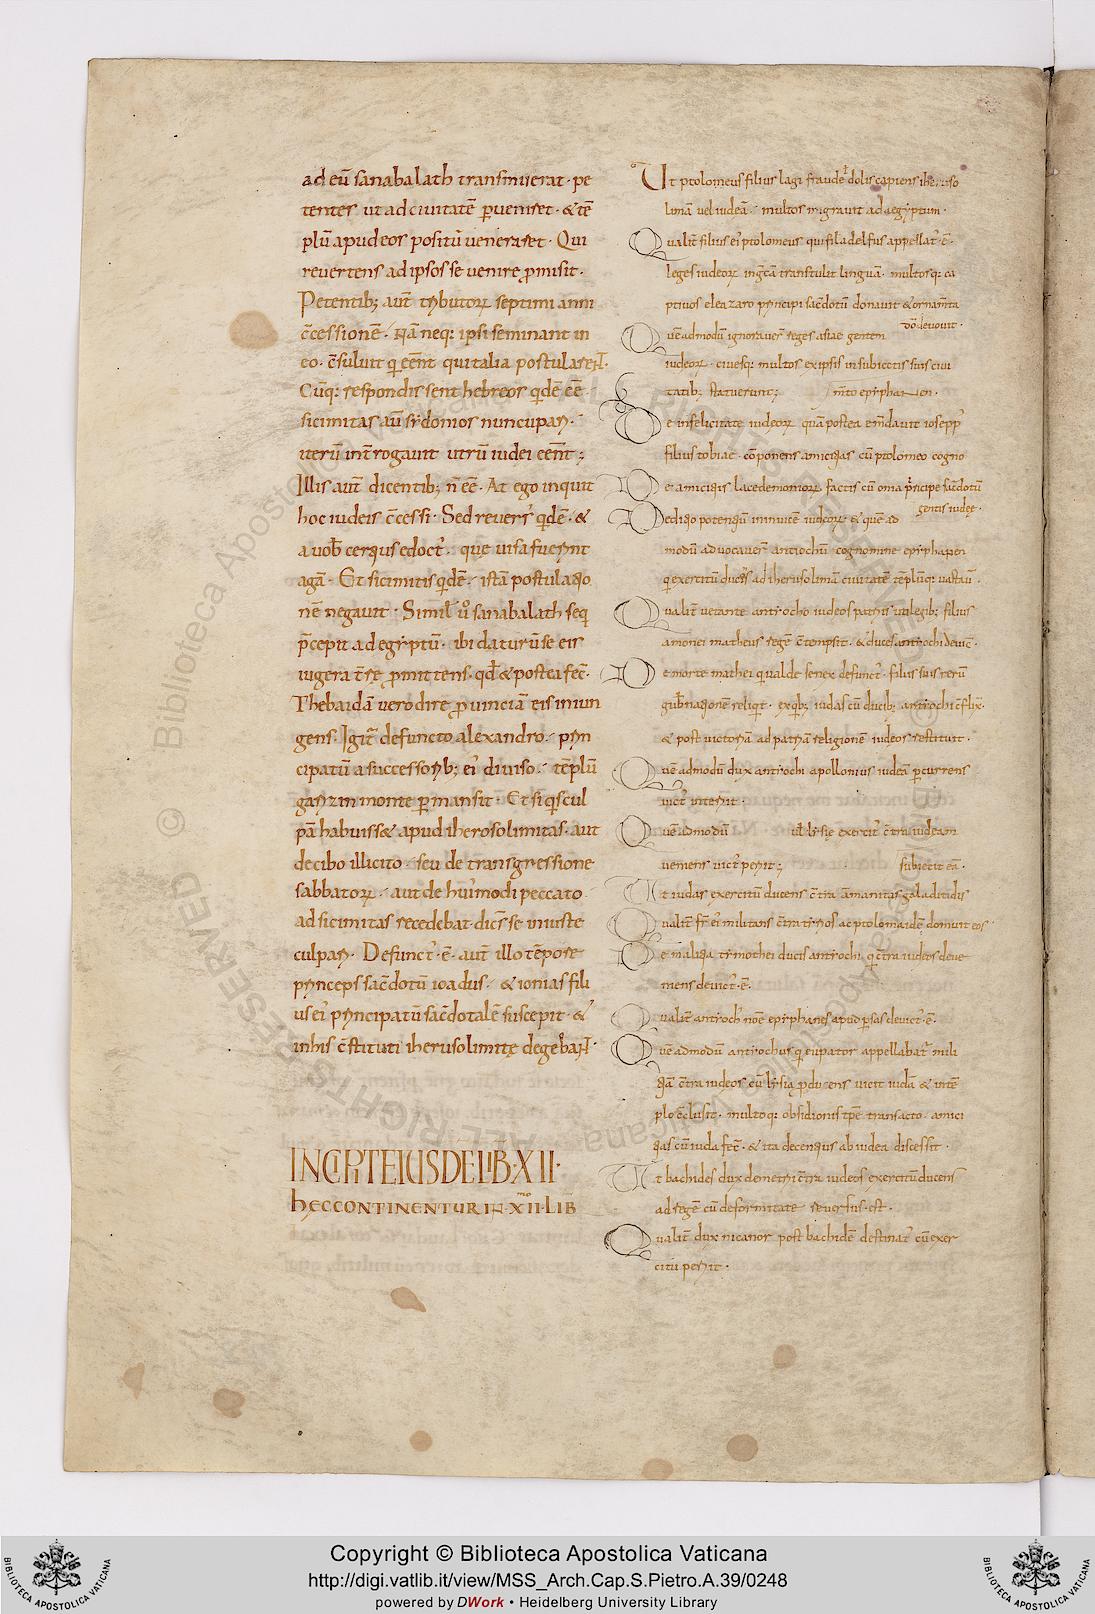 ad eũ sanabalath transmiserat · pe
tentes ut ad ciuitatẽ ꝑueniret · & tẽ
plũ apud eos positũ ueneraret · Qui
reuertens ad ipsos se uenire ꝓmisit ·
Petentib; aut̃ tributorꝝ septimi anni
c̃cessionẽ · Nã neq: ipsi seminant in
eo · c̃suluit qͥ eẽnt qui talia postularent ·
Cũq: respondissent hebreos qͥdẽ eẽ
sicimitas aũ sydomos nuncupari ·
uerũ int̃rogauit utrũ iudei eẽnt ;
Illis aut̃ dicentib; ñ eẽ · At ego inquit
hoc iudeis c̃cessi · Sed reuers᾿ qͥdẽ · &
a uob̃ certius edoct᾿ · quę uisa fuerint
agã · Et sicimitis qͥdẽ · istã postulatio
nẽ negauit · Simil᾿ ũo sanabalath seq
p̃cepit ad egyptũ · ibi daturũ se eis
iugera t̃rę ꝓmittens · qd̃ & postea fec̃ ·
Thebaidã uero dirẽ ꝓuinciã eis iniun
gens · Igit᾿ defuncto alexandro · prin
cipatũ a successorib; ei᾿ diuiso · tẽplũ
garizin monte ꝑmansit · Et si qͥs cul
pã habuiss& apud iherosolimitas · aut
de cibo illicito · seu de transgressione
sabbatorꝝ · aut de hui᾿modi peccato
ad sicimitas recedebat · dic̃s se iniuste
culpari · Defunct᾿ · ẽ · aut̃ illo tẽpore
princeps sac̃dotũ ioadus · & ionias fili
us ei᾿ principatũ sac̃dotalẽ suscepit · &
in his c̃stituti iherusolimitę degebant ·
INCIPIT EIUSDE LIB · XII ·
HĘC CONTINENTUR IN · XII · LIB
Ut ptolomeus filius lagi fraudẽ & dolis capiens iheruso
limã uel iudeã · multos migrauit ad aegyptum ·
Qualit̃ filius ei᾿ ptolomeus qui filadelfus appellat᾿ · ẽ ·
leges iudeorꝝ in g̃cã transtulit linguã · multosq: ca
ptiuos eleazaro principi sac̃dotũ donauit & ornam̃ta
dõ deuouit ·
Quẽadmodũ ignorauer̃ reges asiae gentem
iudeorꝝ · ciuesq: multos ex ipsis in subiectis suis ciui
tatib; statuerunt;
De infelicitate iudeorꝝ quã postea em̃dauit iosepp᾿
filius tobiae · cõponens amicitias cũ ptolomeo cogno
m̃to epiphanen ·
De amicitiis lacedemoniorꝝ factis cũ onia p̃ncipe sac̃dotũ
gentis iudęę ·
De ditio potentiũ inimicẽ iudeorꝝ & quẽ ad
modũ aduocauer̃ antiochũ cognomine epiphanen
qͥ exercitũ ducens ad iherusolimã ciuitatẽ tẽplũq: uastauit ·
Qualit̃ uetante antiocho iudeos patriis uti legib; filius
amonei matheus regẽ c̃tempsit · & duces antiochi deuic̃ ·
De morte mathei qͥ ualde senex defunct᾿ · filiis suis rerũ
gub̃nationẽ reliqͥt · ex qͥb; iudas cũ ducib; antiochi c̃flix̃ ·
& post uictoriã ad patriã religionẽ iudęos restituit ·
Quẽadmodũ dux antiochi apollonius iudeã ꝑcurrens
uict᾿ interiit ·
Quẽadmodũ ul̃ lysię exercit᾿ c̃tra iudeam
ueniens uict᾿ periit ;
subiecit eã ·
Ut iudas exercitũ ducens c̃tra ãmanitas galaditidis
Qualit̃ fr̃ ei᾿ militans c̃tra tirios ac ptolomaidẽ domuit eos ·
De malitia tymothei ducis antiochi qͥ c̃tra iudeos deue
niens deuict᾿ · ẽ ·
Qualit̃ antioch᾿ noĩe epiphanes apud ꝑsas deuict᾿ · ẽ ·
Quẽadmodũ antiochus qͥ eupator appellabat᾿ mili
tiã c̃tra iudeos cũ lysia ꝓducens uicit iudã & intẽ
plo c̃clusit · multoq: obsidionis tp̃e transacto · amici
tias cũ iuda fec̃ · & ita decentius ab iudea discessit ·
Ut bachides dux demetrii c̃tra iudeos exercitũ ducens
ad regẽ cũ deformitate reuersus · est ·
Qualit̃ dux nicanor post bachidẽ destinat᾿ cũ exer
citu periit ·
Copyright © Biblioteca Apostolica Vaticana
http://digi.vatlib.it/view/MSS_Arch.Cap.S.Pietro.A.39/0248
powered by DWork • Heidelberg University Library